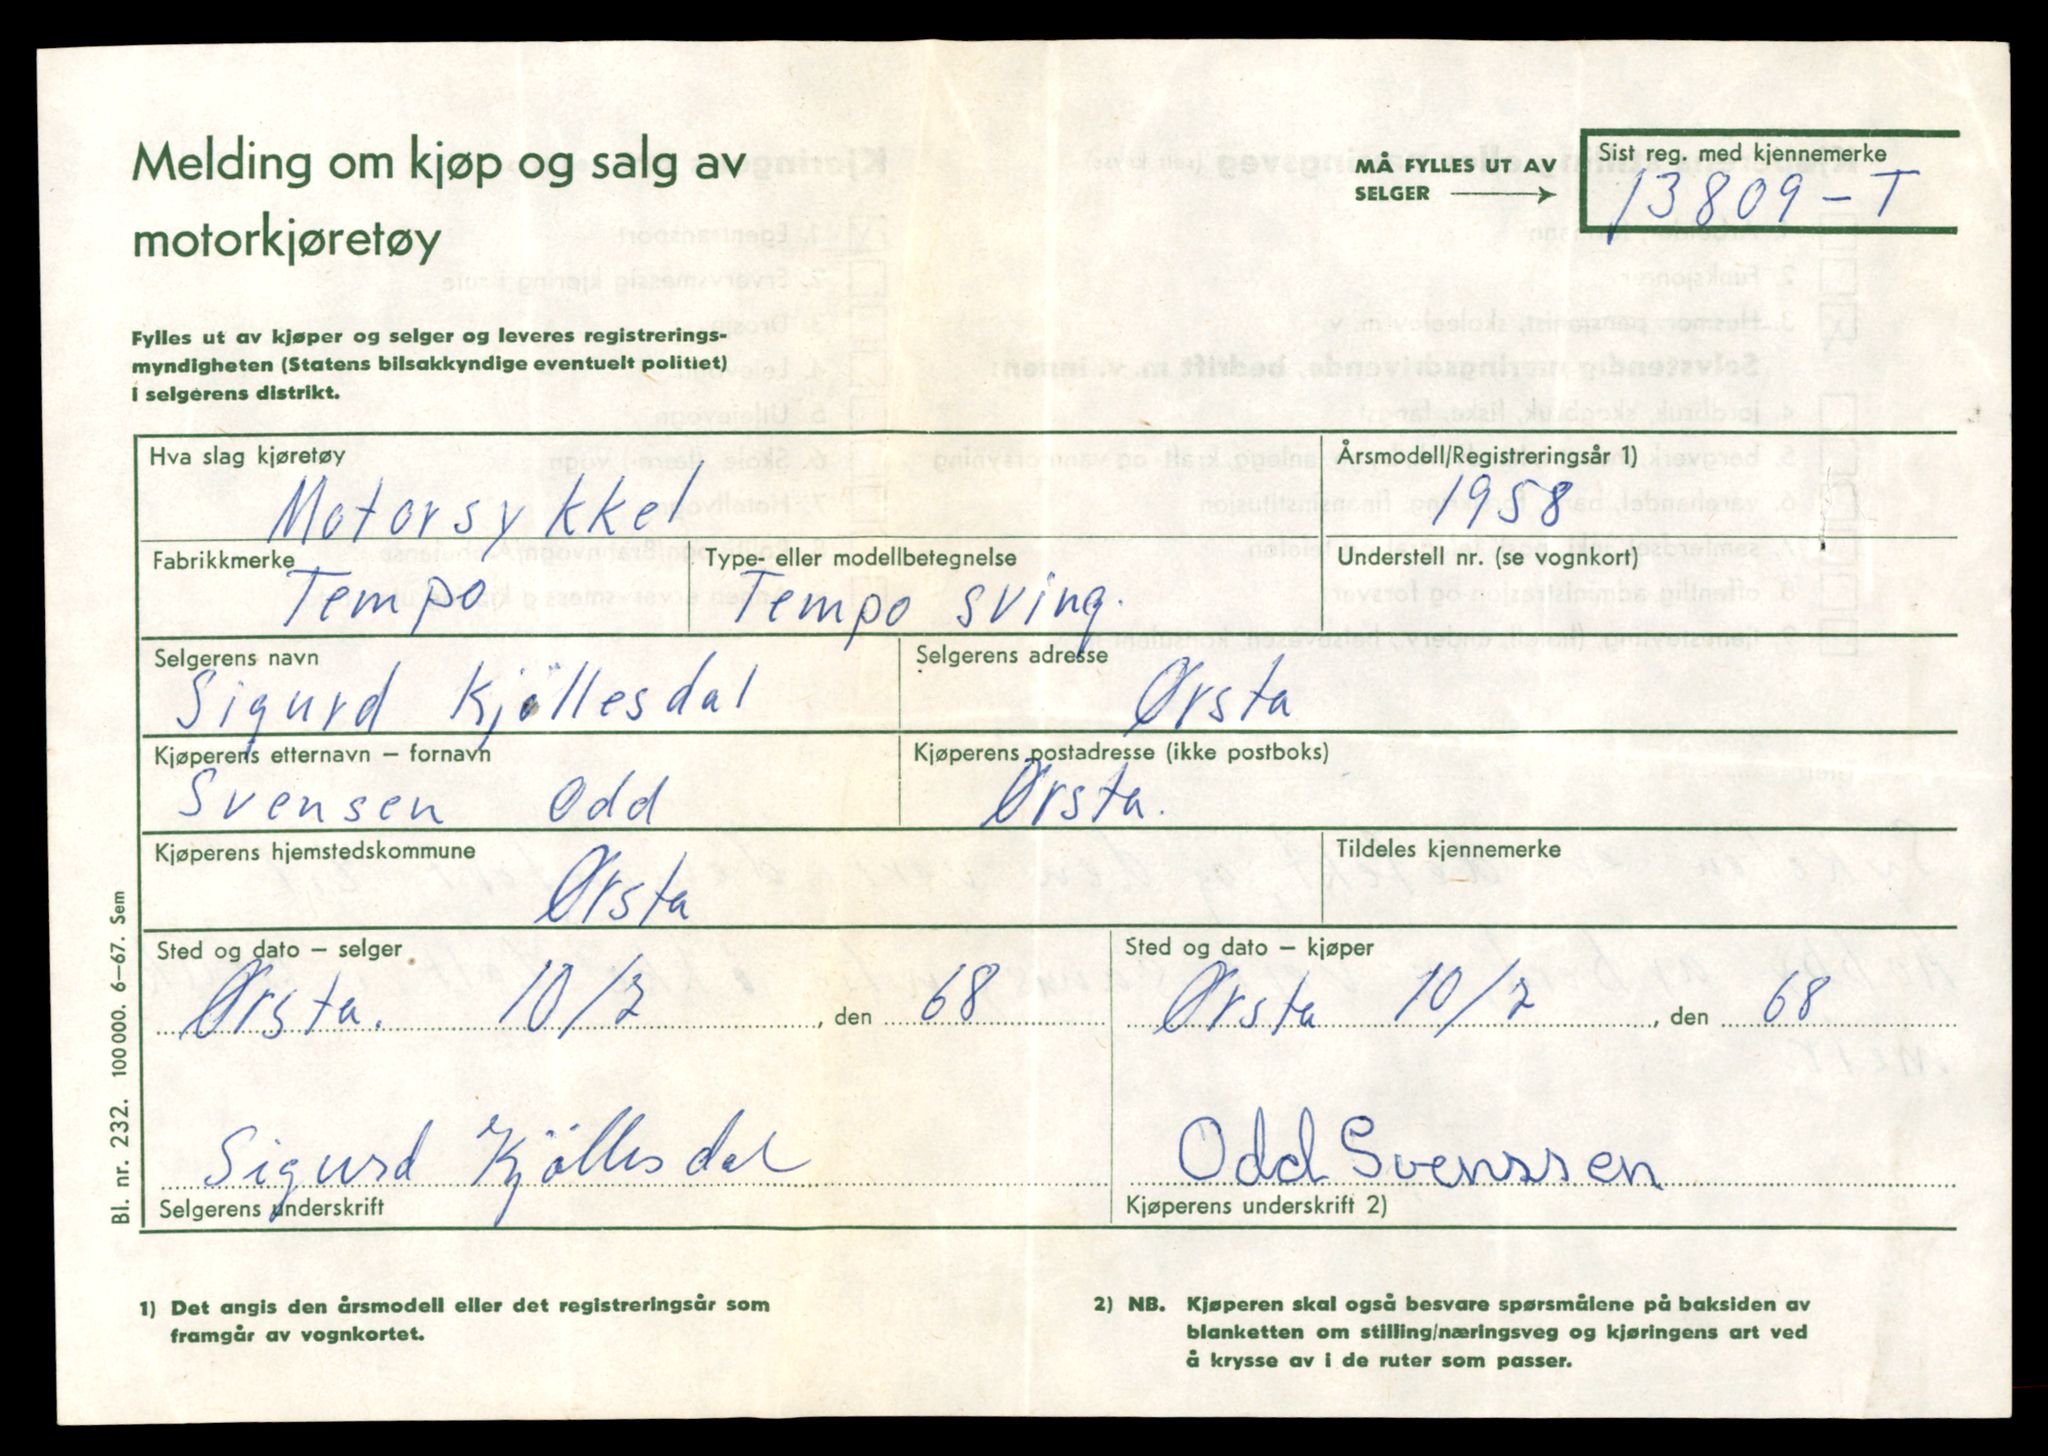 Melding om kjøp og salg av
motorkjøretøy
MÅ FYLLES UT AV
SELGER
Sist reg. med kjennemerke
13809-T
Fylles ut av kjøper og selger og leveres registrerings-
myndigheten (Statens bilsakkyndige eventuelt politiet)
i selgerens distrikt.
Hva slag kjøretøy
Motorsykkel
Årsmodell/Registreringsår 1)
1958
Fabrikkmerke
Tempo
Type- eller modellbetegnelse
Tempo sving.
Understell nr. (se vognkort)
Selgerens navn
Sigurd Kjöllesdal
Selgerens adresse
Ørsta
Kjøperens etternavn – fornavn
Svensen Odd
Kjøperens postadresse (ikke postboks)
Ørsta.
Kjøperens hjemstedskommune
Ørsta
Tildeles kjennemerke
Sted og dato – selger
Ørsta. 10/2, den 68
Sted og dato – kjøper
Ørsta 10/2, den 68
Sigurd Kjöllesdal
Selgerens underskrift
Odd Svenssen
Kjøperens underskrift 2)
Bl. nr. 232. 100 000. 6–67. Sem
1) Det angis den årsmodell eller det registreringsår som
framgår av vognkortet.
2) NB. Kjøperen skal også besvare spørsmålene på baksiden av
blanketten om stilling/næringsveg og kjøringens art ved
å krysse av i de ruter som passer.